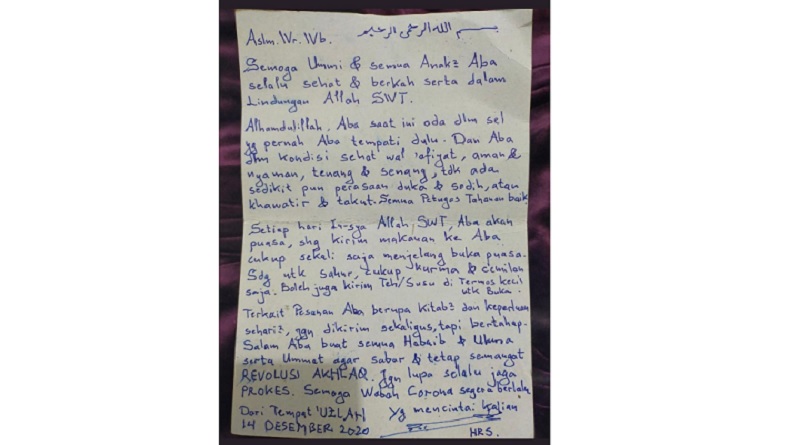 بسم الله الرحمن الرحيم
Aslm. Wr. Wb.
Semoga Ummi & semua Anak2 Aba
selalu sehat & berkah serta dalam
Lindungan Allah SWT.
Alhamdulillah, Aba saat ini ada dlm sel
yg pernah Aba tempati dulu. Dan Aba
dlm kondisi sehat wal 'afiyat, aman &
nyaman, tenang & senang, tdk ada
sedikit pun perasaan duka & sedih, atau
khawatir & takut. Semua Petugas Tahanan baik
Setiap hari In-sya Allah SWT, Aba akan
puasa, shg kirim makanan ke Aba
cukup sekali saja menjelang buka puasa.
Sdg utk sahur, cukup kurma & cemilan
saja. Boleh juga kirim Teh/Susu di Termos kecil
utk Buka.
Terkait Pesanan Aba berupa kitab2 dan keperluan
sehari2, jgn dikirim sekaligus, tapi bertahap.
Salam Aba buat semua Habaib & Ulama
serta Ummat agar sabar & tetap semangat
REVOLUSI AKHLAQ. Jgn lupa selalu jaga
PROKES. Semoga Wabah Corona segera berlalu
Dari Tempat 'UZLAH
Yg mencintai kalian
14 DESEMBER 2020
HRS.